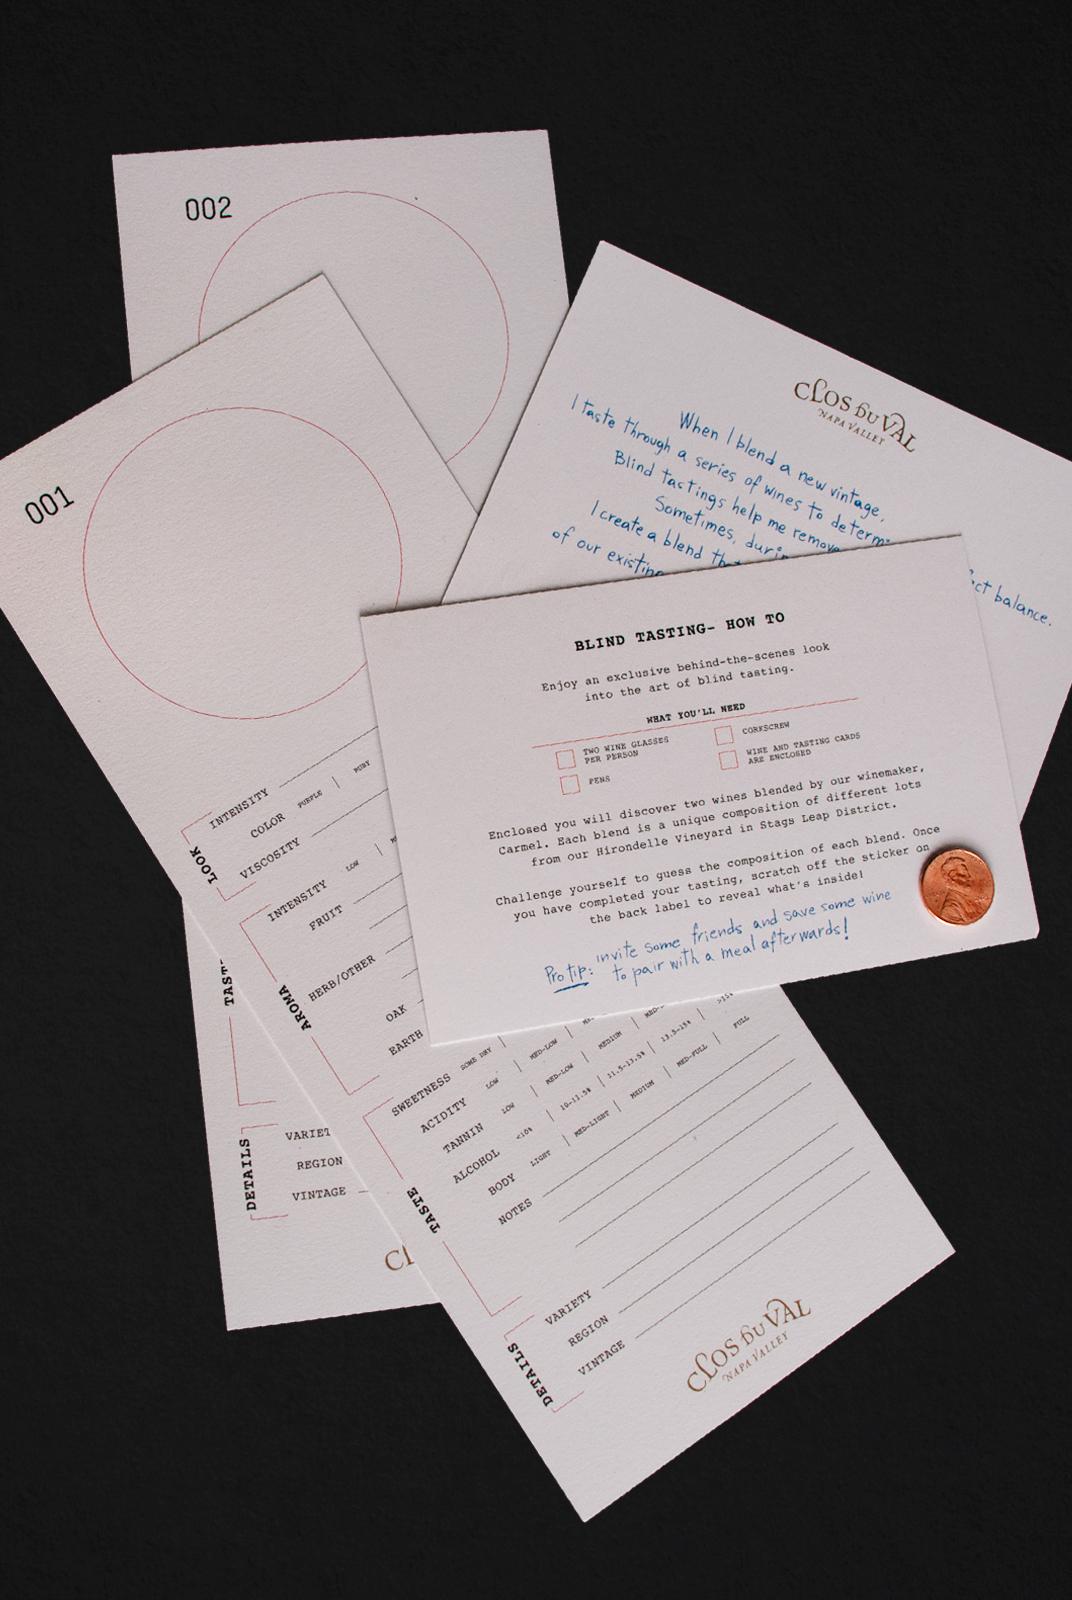 002
001
CLOS DU VAL
NAPA VALLEY
When I blend a new vintage,
I taste through a series of wines to
Blind tastings help me remove
Sometimes,
I create a blend
of our
balance.
BLIND TASTING- HOW TO
Enjoy an exclusive behind-the-scenes look
into the art of blind tasting.
WHAT YOU'LL NEED
TWO WINE GLASSES
PER PERSON
PENS
CORKSCREW
WINE AND TASTING CARDS
ARE ENCLOSED
Enclosed you will discover two wines blended by our winemaker,
Carmel. Each blend is a unique composition of different lots
from our Hirondelle Vineyard in Stags Leap District.
Challenge yourself to guess the composition of each blend. Once
you have completed your tasting, scratch off the sticker on
the back label to reveal what's inside!
Pro tip: invite some friends and save some wine
to pair with a meal afterwards!
LOOK
INTENSITY
COLOR PURPLE | RUBY
VISCOSITY
AROMA
INTENSITY LOW |
FRUIT
HERB/OTHER
OAK
EARTH
TASTE
SWEETNESS SOME DRY |
ACIDITY LOW | MED-LOW | MEDIUM |
TANNIN LOW | MED-LOW |
ALCOHOL <10% | 10-11.5% | 11.5-13.5% | 13.5-15% | >15%
BODY LIGHT | MED-LIGHT | MEDIUM | MED-FULL | FULL
NOTES
DETAILS
VARIETY
REGION
VINTAGE
CLOS DU VAL
NAPA VALLEY
TAST
DETAILS
VARIET
REGION
VINTAGE
CL